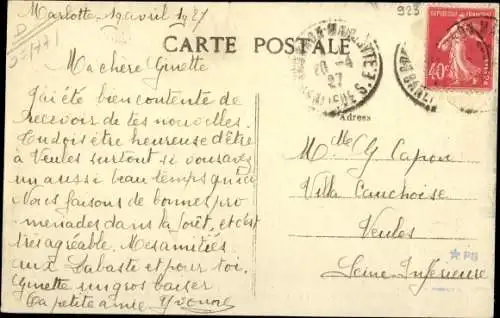 Marlotte, 19 avril 1927
923
CARTE POSTALE
Ma chère Ginette
J'ai été bien contente de
recevoir de tes nouvelles.
Tu dois être heureuse d'être
à Veules surtout si vous avez
un aussi beau temps qu'ici
Nous faisons de bonnes pro
menades dans la forêt, et c'est
très agréable. Mes amitiés
aux Labaste et pour toi,
Ginette un gros baiser
Ta petite amie Yvonne
20 - 4
27
S. & M.
40c
Adresse
Mlle G Capon
Villa Cauchoise
Veules
Seine Inférieure
* PB